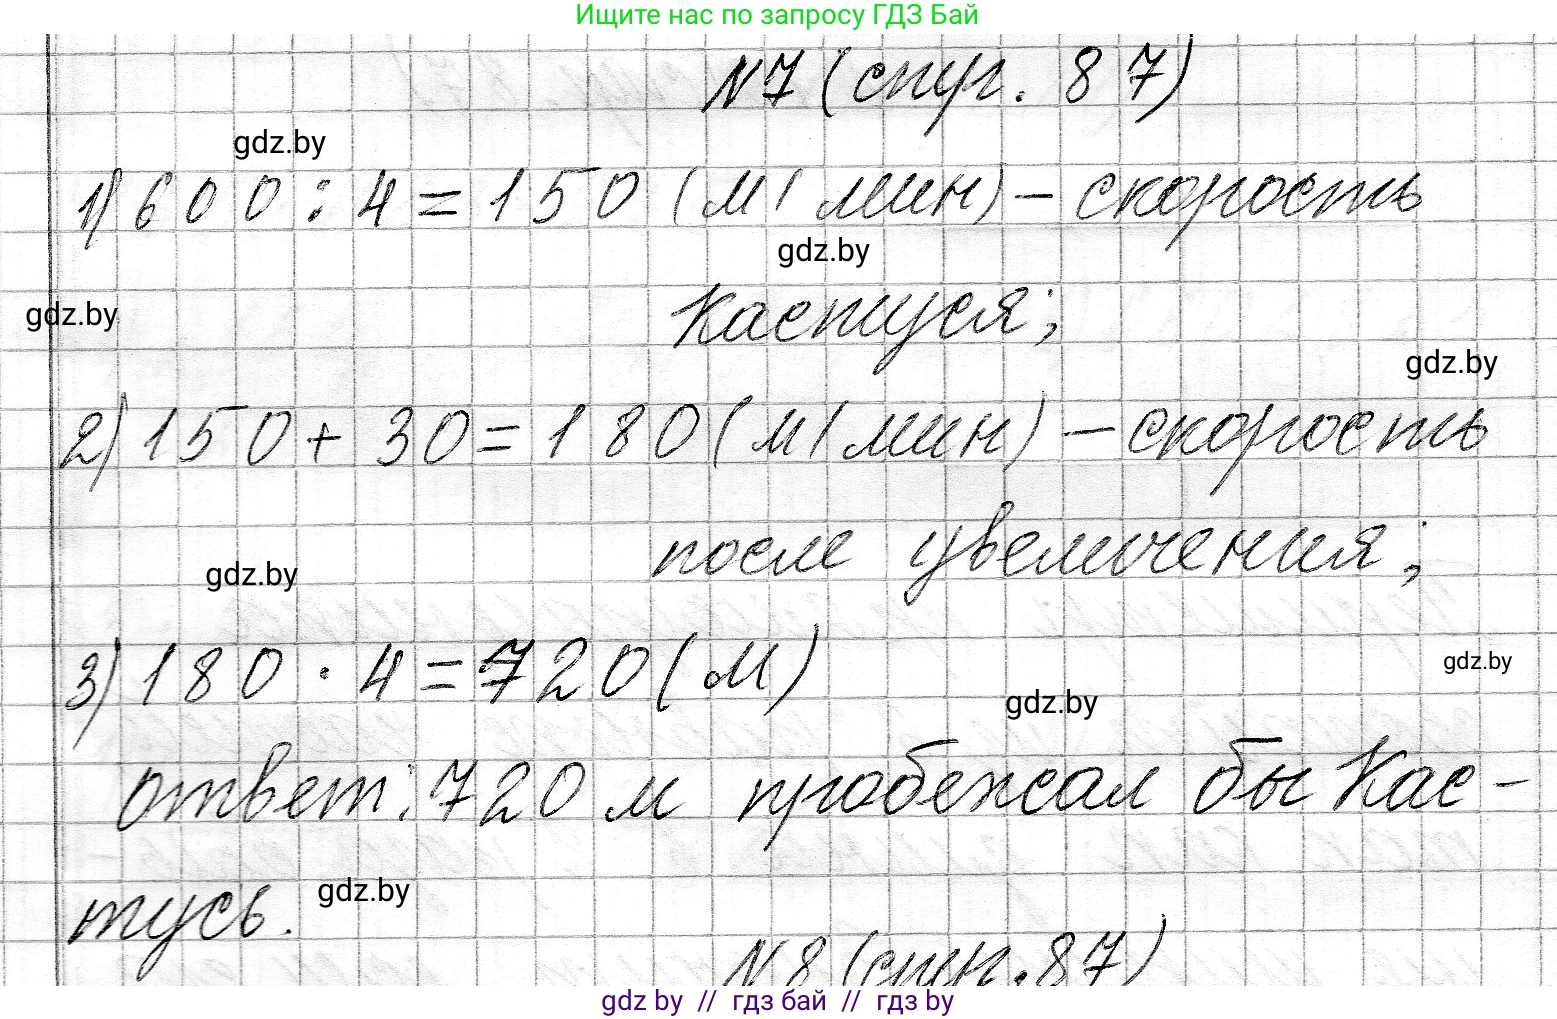 Ищите нас по запросу ГДЗ Бай
№7 (стр. 87)
gdz.by
1) 600 : 4 = 150 (м/мин) – скорость
gdz.by
Кастуся;
gdz.by
gdz.by
2) 150 + 30 = 180 (м/мин) – скорость
после увеличения;
gdz.by
3) 180 · 4 = 720 (м)
gdz.by
gdz.by
ответ: 720 м пробежал бы Кас-
тусь.
gdz.by
№8 (стр. 87)
gdz by // гдз бай // гдз by